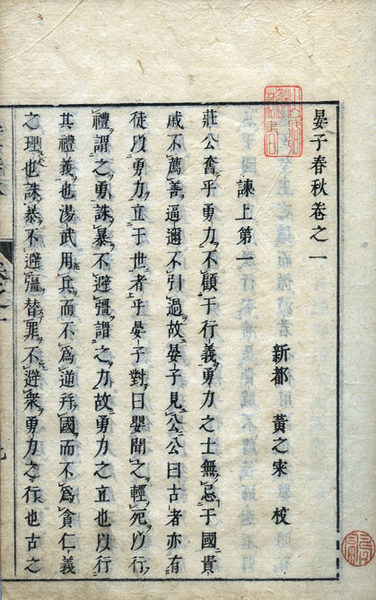 晏子春秋卷之一
新都 黃之寀 校
諫上第一
莊公奮乎勇力不顧于行義勇力之士無忌于國貴
戚不薦善逼邇不引過故晏子見公公曰古者亦有
徒以勇力立于世者乎晏子對曰嬰聞之輕死以行
禮謂之勇誅暴不避彊謂之力故勇力之立也以行
其禮義也湯武用兵而不為逆并國而不為貪仁義
之理也誅暴不避彊替罪不避衆勇力之行也古之